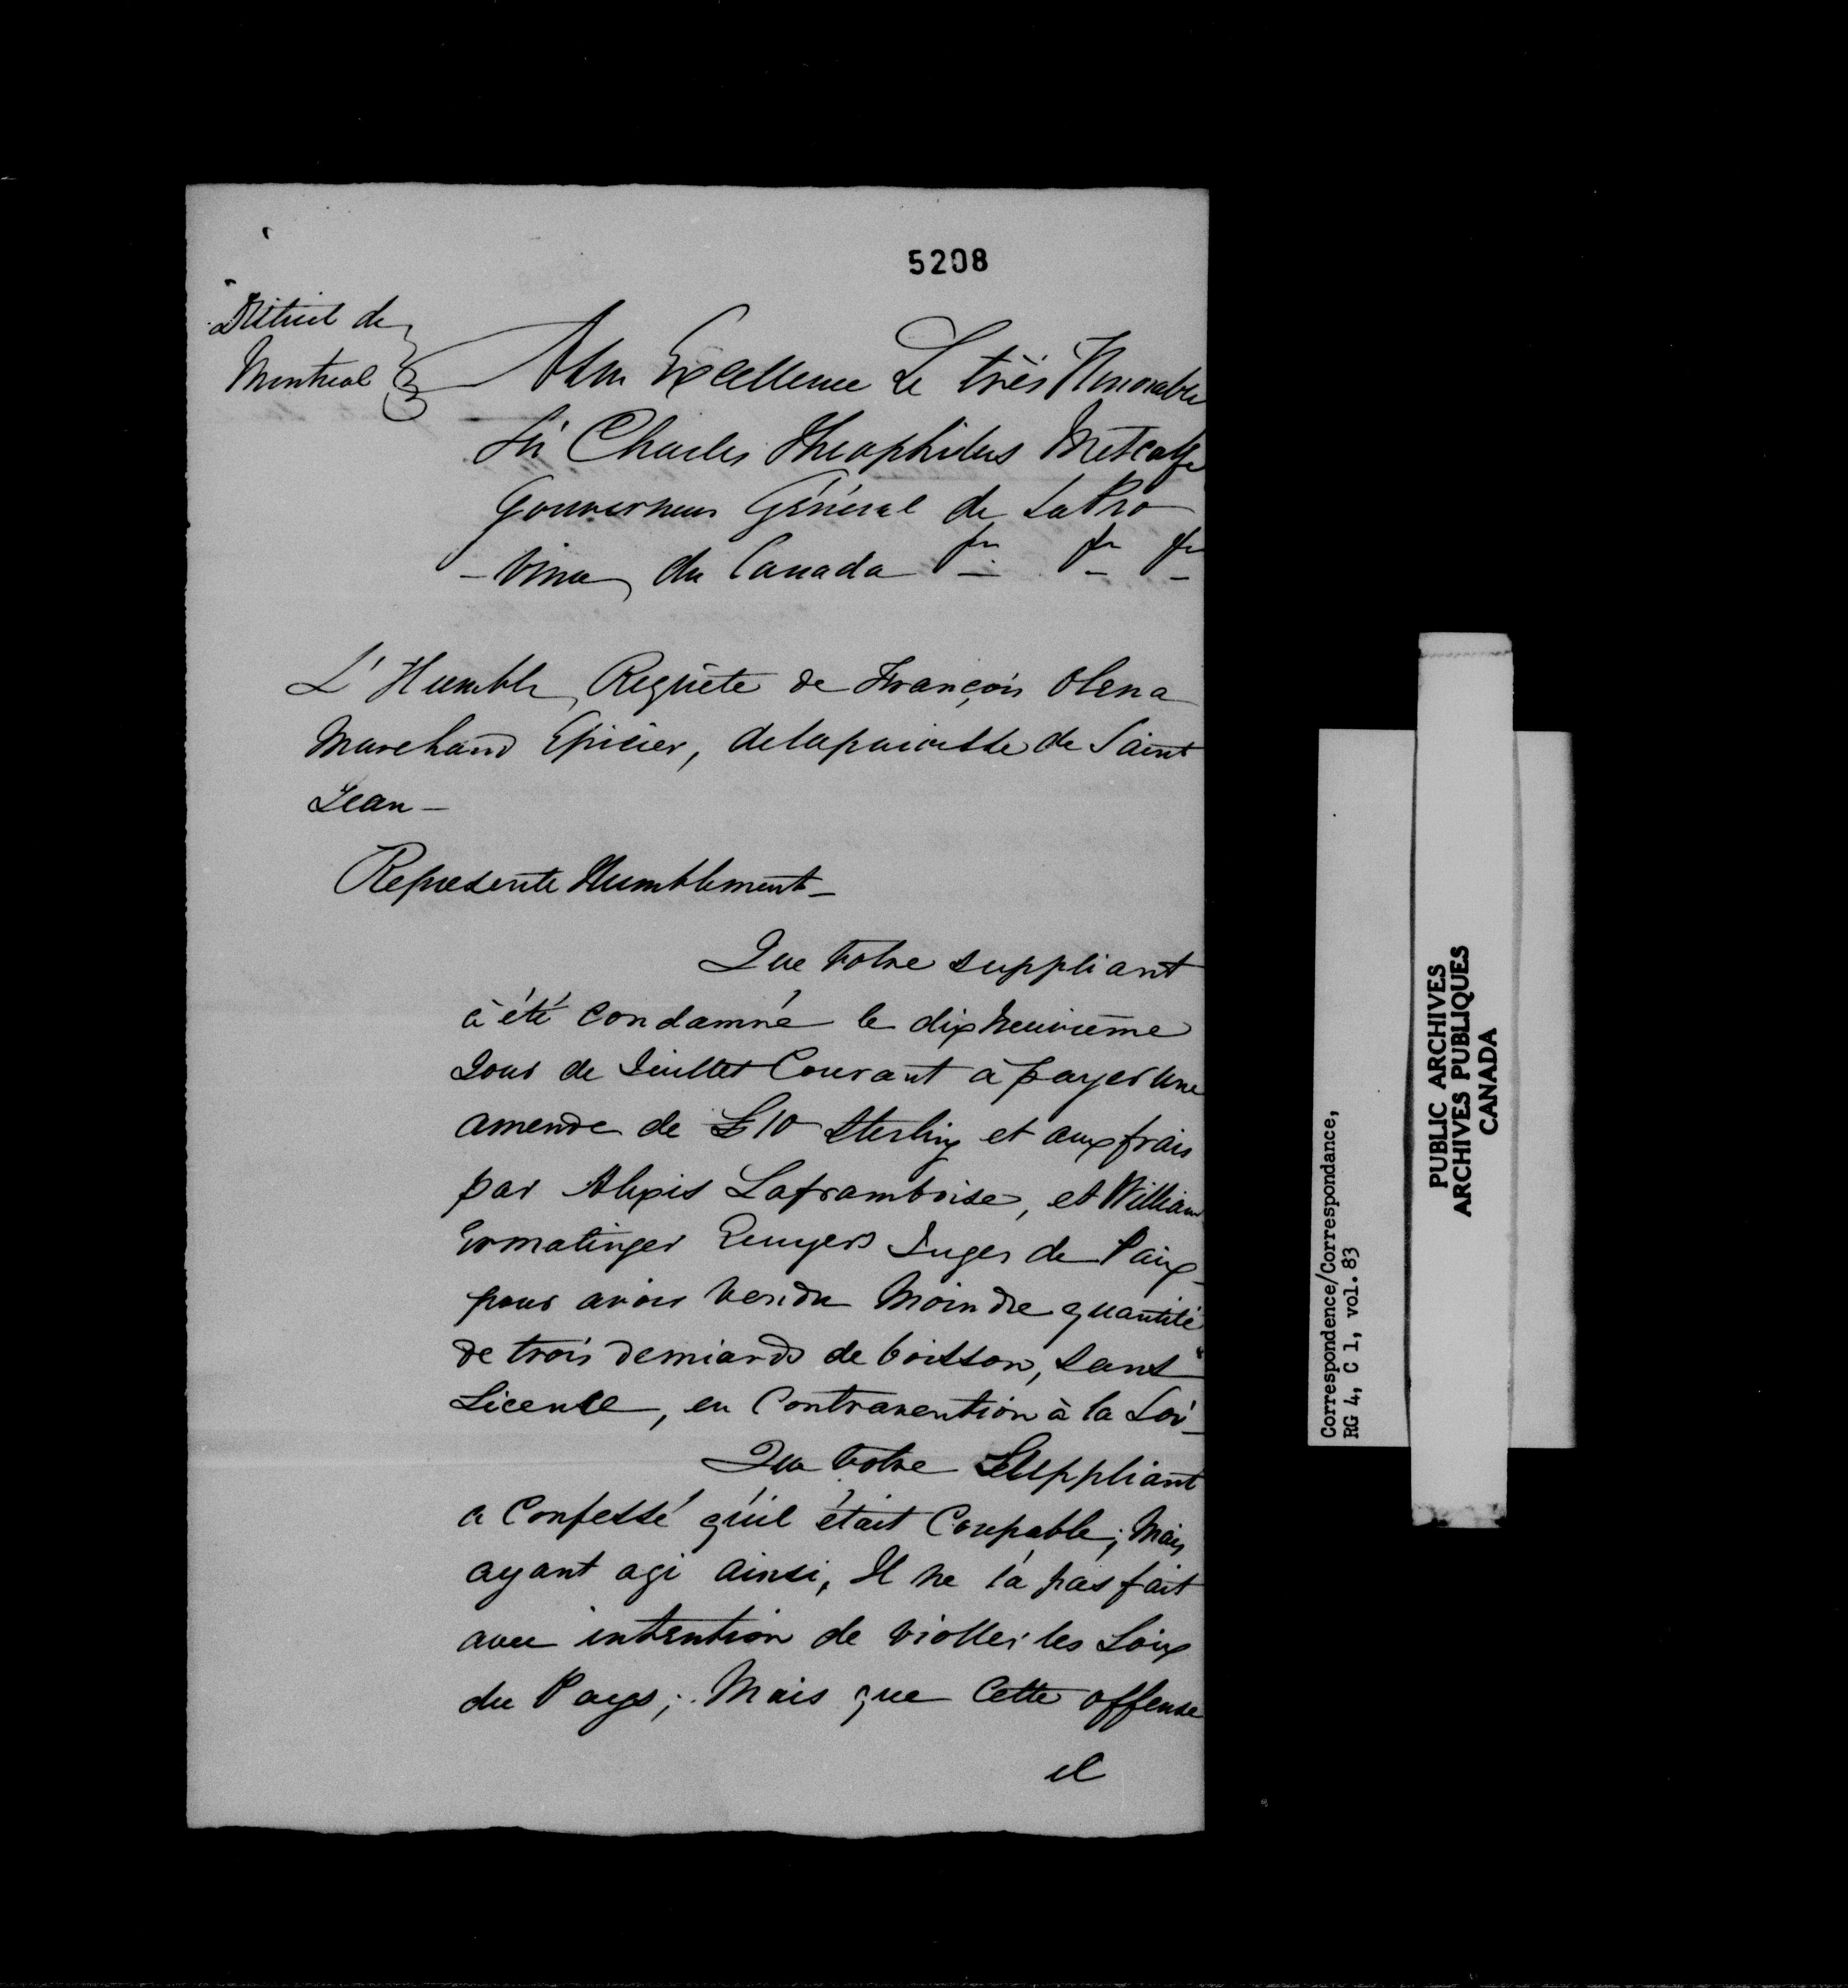 5208
District de
Montreal
A Son Excellence Le très Honorable
Sir Charles Theophilus Metcalfe
Gouverneur Général de La Pro
-vince du Canada &c &c &c
L'Humble Requête de François Olena
Marchand Epicier, de la paroisse de Saint
Jean -
Represente Humblement -
Que Votre suppliant
à été condamné le dix neuvième
Jour de Juillet Courant à payer une
amende de £10 Sterling et aux frais
par Alexis Laframboise, et William
Ermatinger Ecuyers Juges de Paix
pour avoir vendu Moindre quantité
de trois demiards de boisson, sans
License, en Contravention à la Loi -
Que Votre Suppliant
a Confessé qu'il était Coupable; Mais
ayant agi ainsi, Il ne l'a pas fait
avec intention de violler les Loix
du Pays; Mais que Cette offense
il
Correspondence/Correspondance,
RG 4, C 1, vol. 83
PUBLIC ARCHIVES
ARCHIVES PUBLIQUES
CANADA